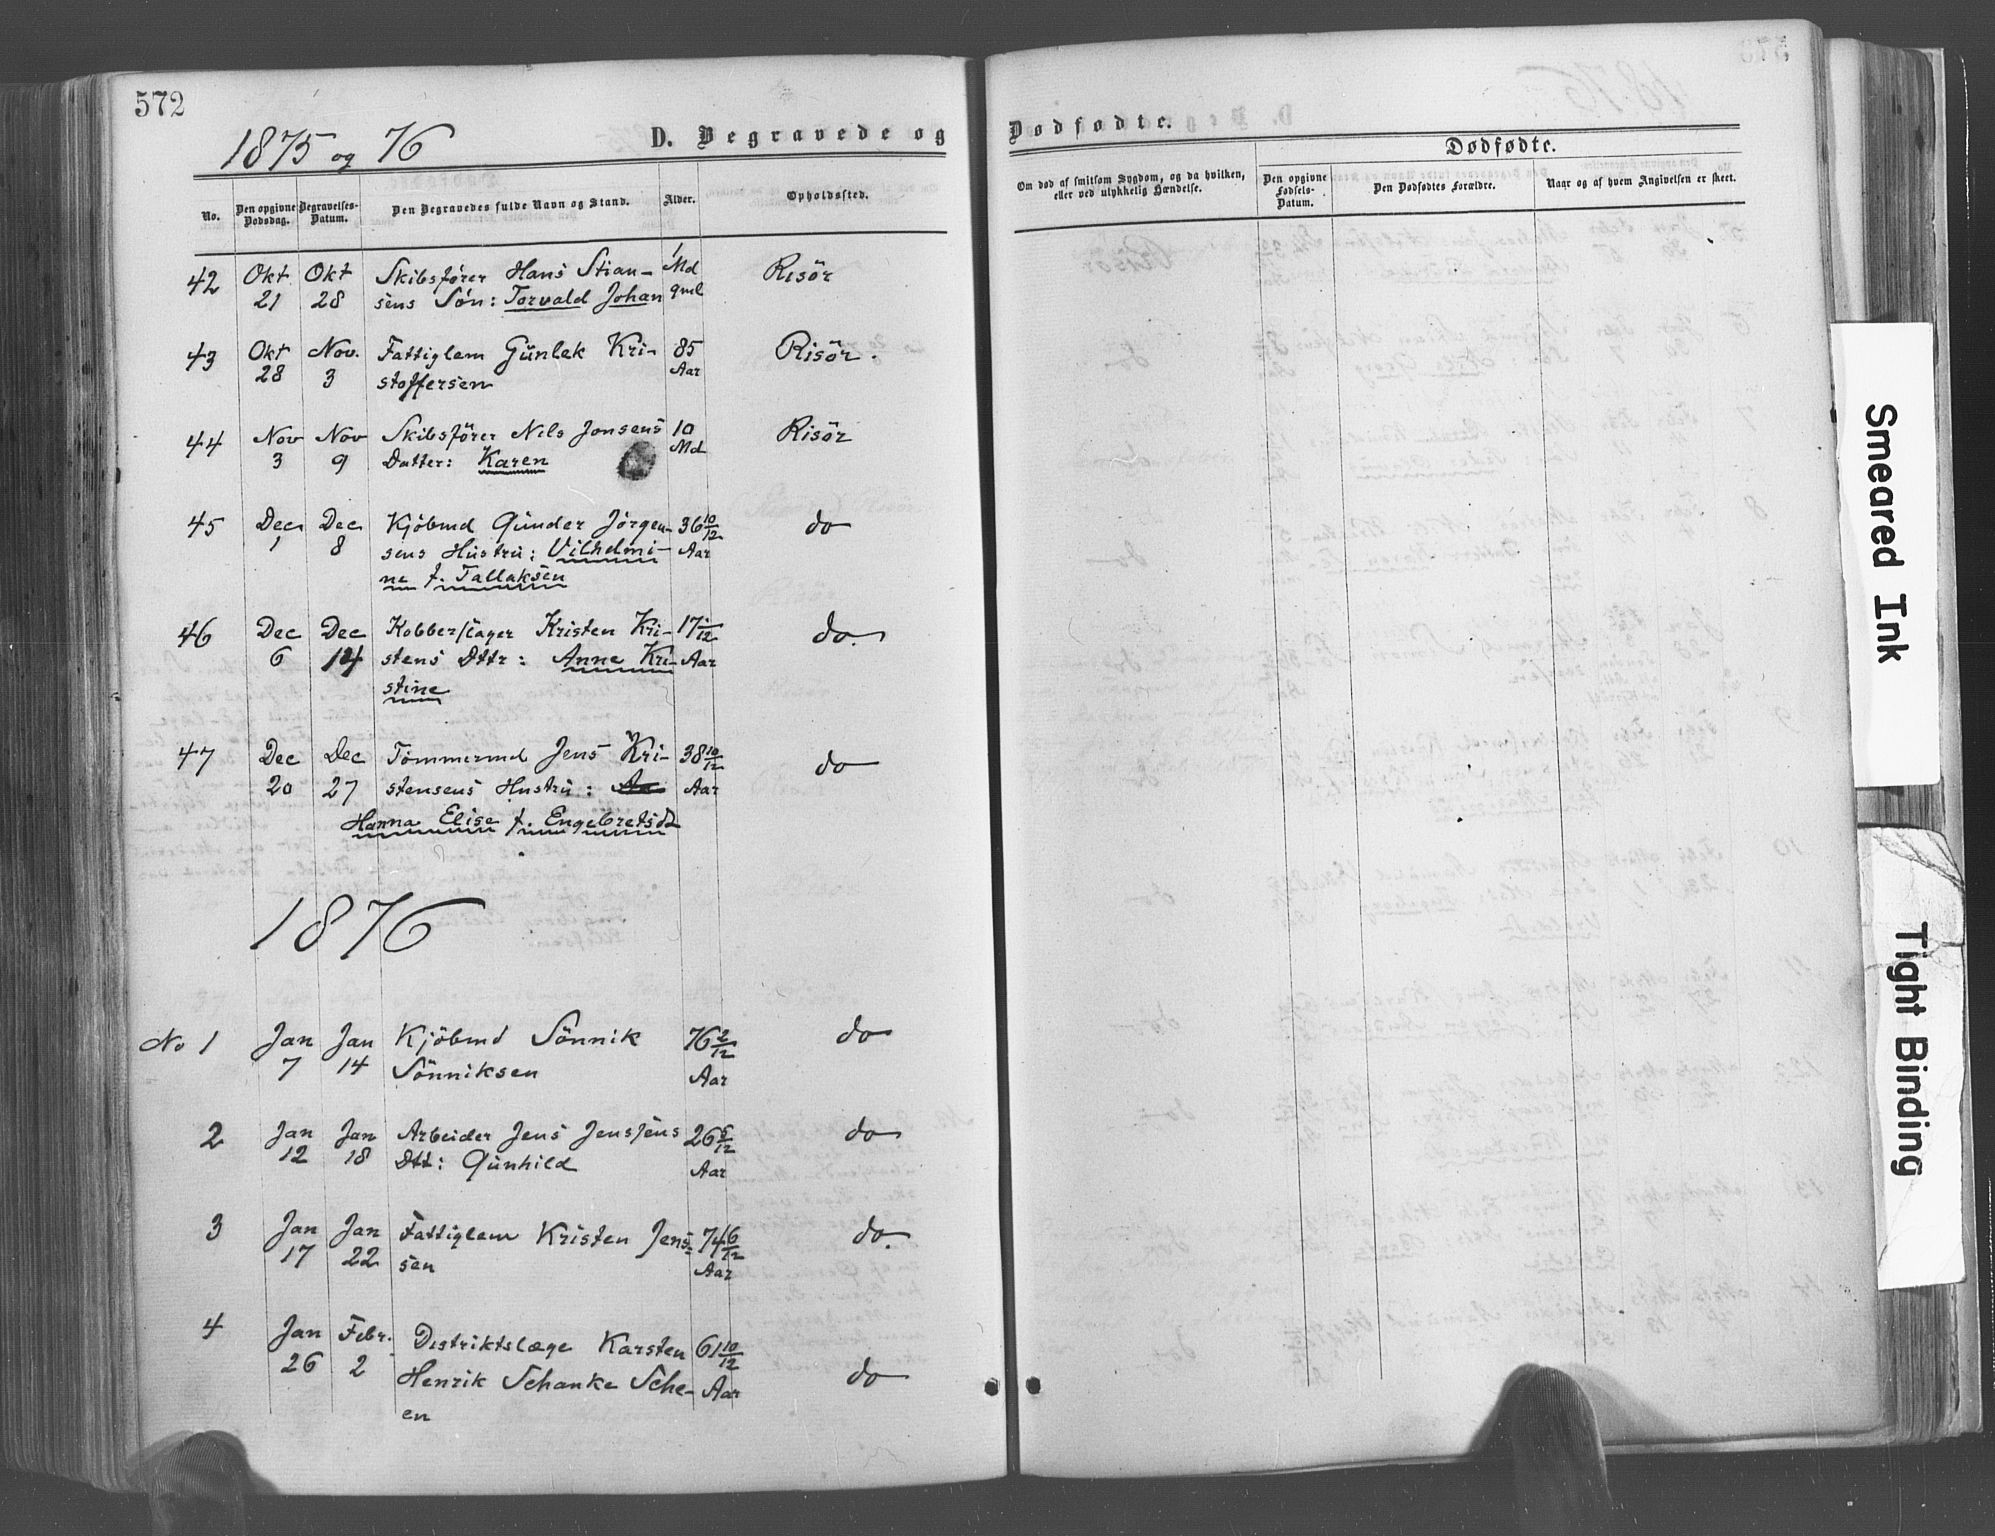 572
1875 og 76
D. Begravede og
No.
Den opgivne Dødsdag.
Begravelses-Datum.
Den Begravedes fulde Navn og Stand.
Alder.
Opholdssted.
42 Okt 21 Okt 28 Skibsfører Hans Stian- 1 Md Risör
sens Søn: Torvald Johan
43 Okt 28 Nov. 3 Fattiglem Günlek Kri- 85 Aar Risör.
stoffersen
44 Nov 3 Nov 9 Skibsfører Nils Jonsens 10 Md Risör
Datter: Karen
45 Dec 1 Dec 8 Kjöbmd Günder Jörgen- 36 10/12 Aar do
sens Hüstrü: Vilhelmi-
ne f. Tallaksen
46 Dec 6 Dec 14 Kobberslager Kristen Kri- 17 1/12 Aar do.
stens Dttr: Anne Kri-
stine
47 Dec 20 Dec 27 Tömmermd Jens Kri- 38 10/12 Aar do
stensens Hustrü:
Hanna Elise f. Engebretsdt
1876
No 1 Jan 7 Jan 14 Kjöbmd Sönnik 76 2/12 Aar do
Sönniksen
2 Jan 12 Jan 18 Arbeider Jens Jenssens 26 5/12 Aar do
Dtt: Günhild
3 Jan 17 Jan 22 Fattiglem Kristen Jens- 74 6/12 Aar do.
sen
4 Jan 26 Febr. 2 Distriktslæge Karsten 61 10/12 Aar do
Henrik Schanke Sche-
en
Dødfødte.
Om død af smitsom Sygdom, og da hvilken,
eller ved ulykkelig Hændelse.
Dødfødte.
Den opgivne Fødsels-Datum.
Den Dødfødtes Forældre.
Naar og af hvem Angivelsen er skeet.
Smeared Ink
Tight Binding